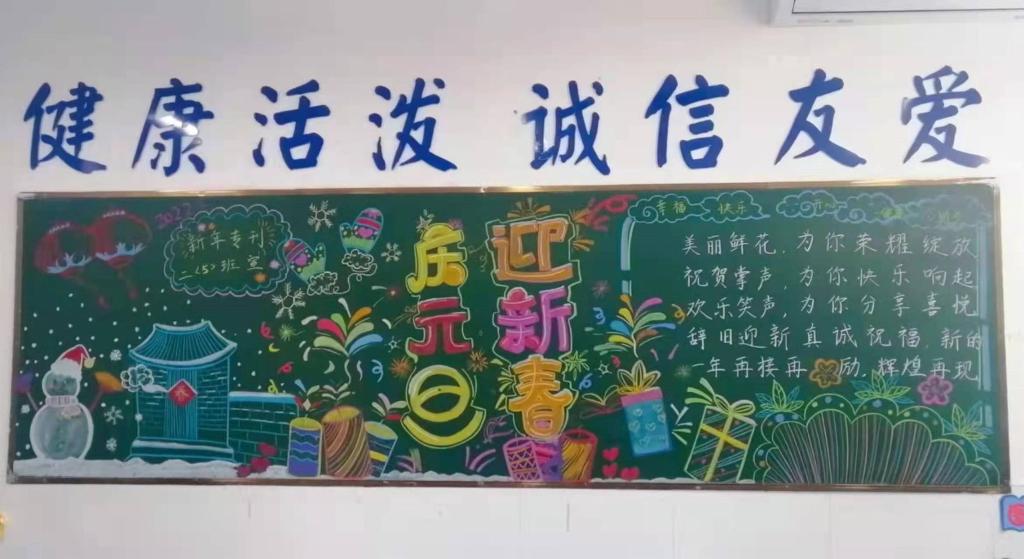 健康活泼 诚信友爱
2022
新年专刊
二(5)班宣
庆元旦
迎新春
春
幸福 快乐 开心
美丽鲜花,为你荣耀绽放
祝贺掌声,为你快乐响起
欢乐笑声,为你分享喜悦
辞旧迎新真诚祝福,新的
一年再接再励,辉煌再现